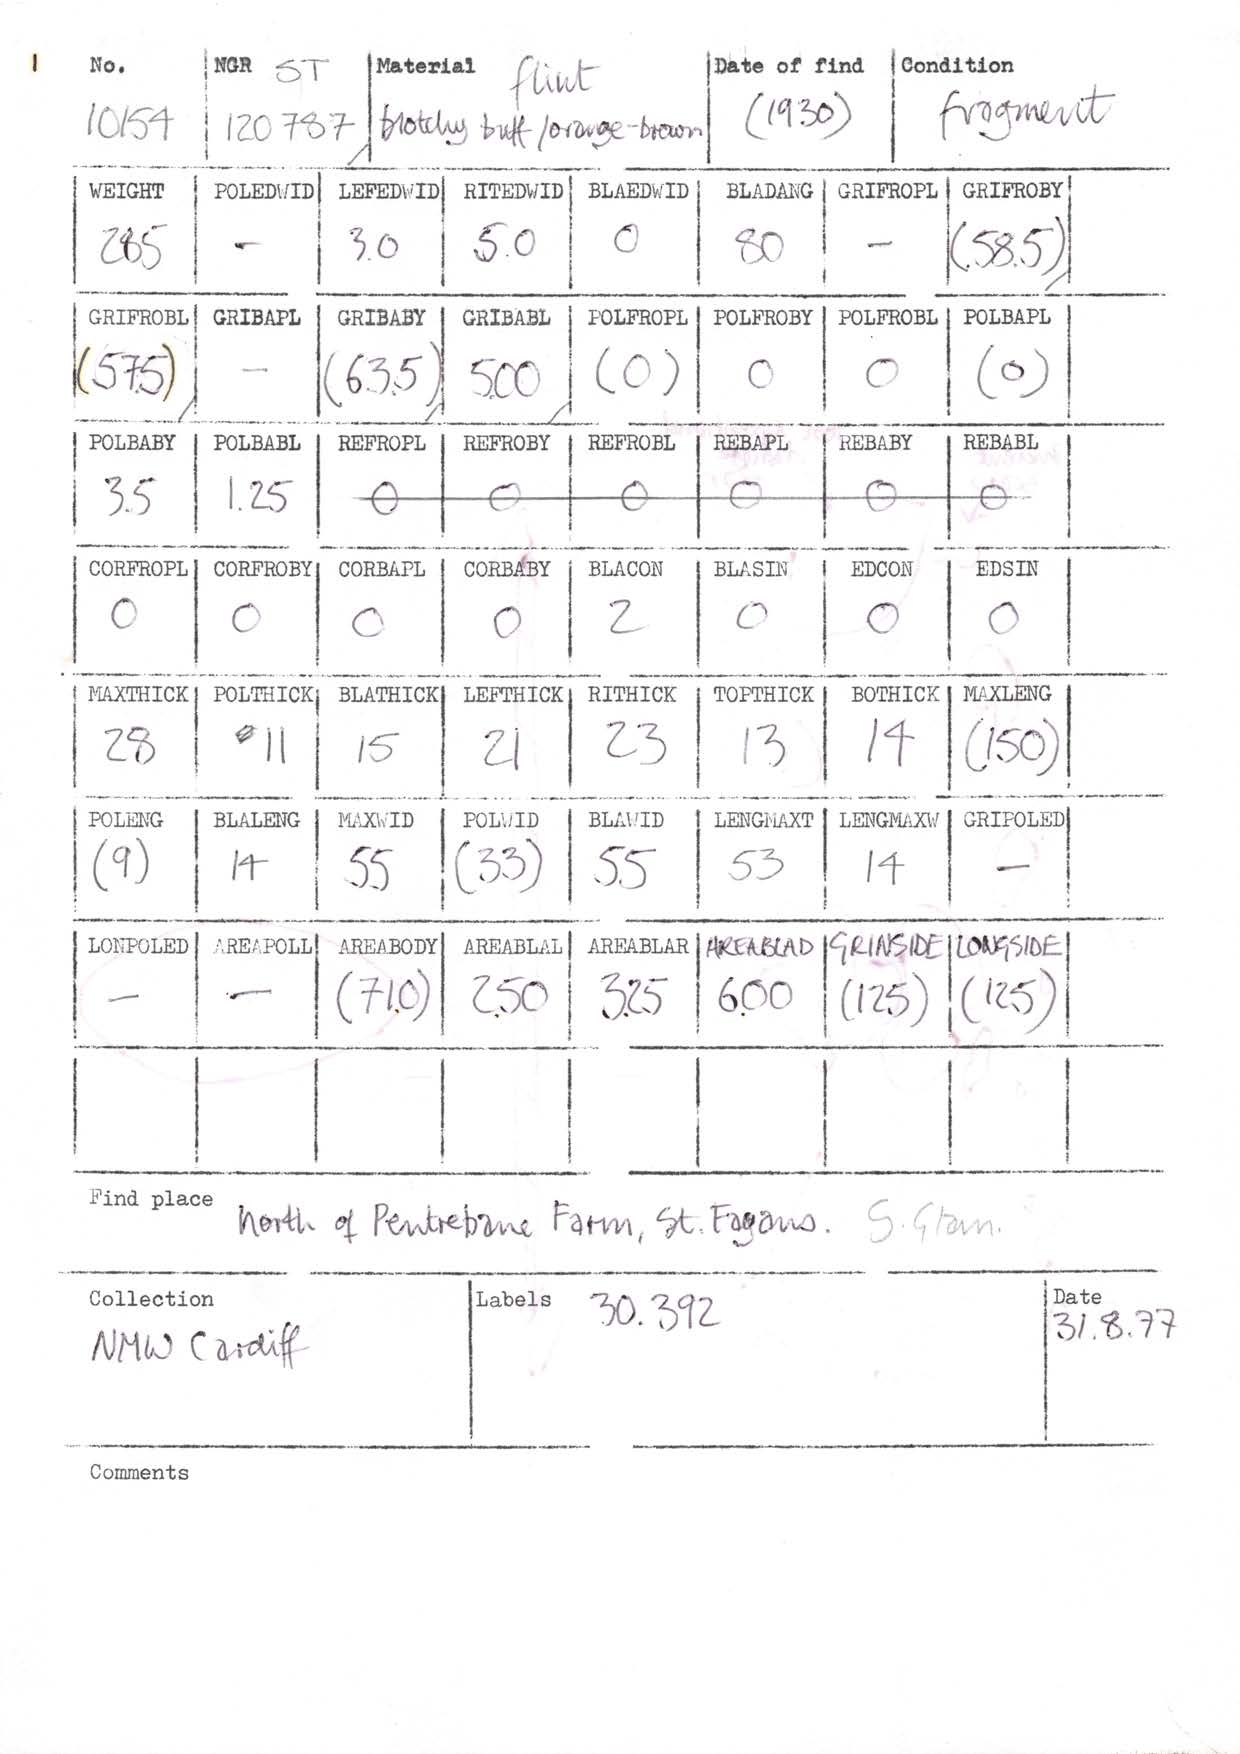 1
No. NGR ST Material flint Date of find Condition
10154 120 787 blotchy buff/orange-brown (1930) fragment
WEIGHT POLEDWID LEFEDWID RITEDWID BLAEDWID BLADANG GRIFROPL GRIFROBY
285 - 3.0 5.0 0 80 - (58.5)
GRIFROBL GRIBAPL GRIBABY GRIBABL POLFROPL POLFROBY POLFROBL POLBAPL
(57.5) - (63.5) 5.00 (0) 0 0 (0)
POLBABY POLBABL REFROPL REFROBY REFROBL REBAPL REBABY REBABL
3.5 1.25 0 0 0 0 0 0
CORFROPL CORFROBY CORBAPL CORBABY BLACON BLASIN EDCON EDSIN
0 0 0 0 2 0 0 0
MAXTHICK POLTHICK BLATHICK LEFTHICK RITHICK TOPTHICK BOTHICK MAXLENG
28 11 15 21 23 13 14 (150)
POLENG BLALENG MAXWID POLWID BLAWID LENGMAXT LENGMAXW GRIPOLED
(9) 14 55 (33) 55 53 14 -
LONPOLED AREAPOLL AREABODY AREABLAL AREABLAR AREABLAD GRINSIDE LONGSIDE
- - (71.0) 2.50 3.25 6.00 (125) (125)
Find place North of Pentrebane Farm, St. Fagans. S. Glam.
Collection Labels 30.392 Date
NMW Cardiff 31.8.77
Comments